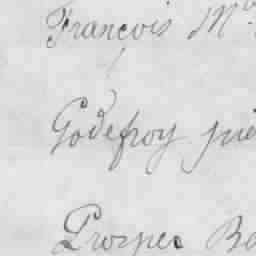 François M
Godefroy
Prosper